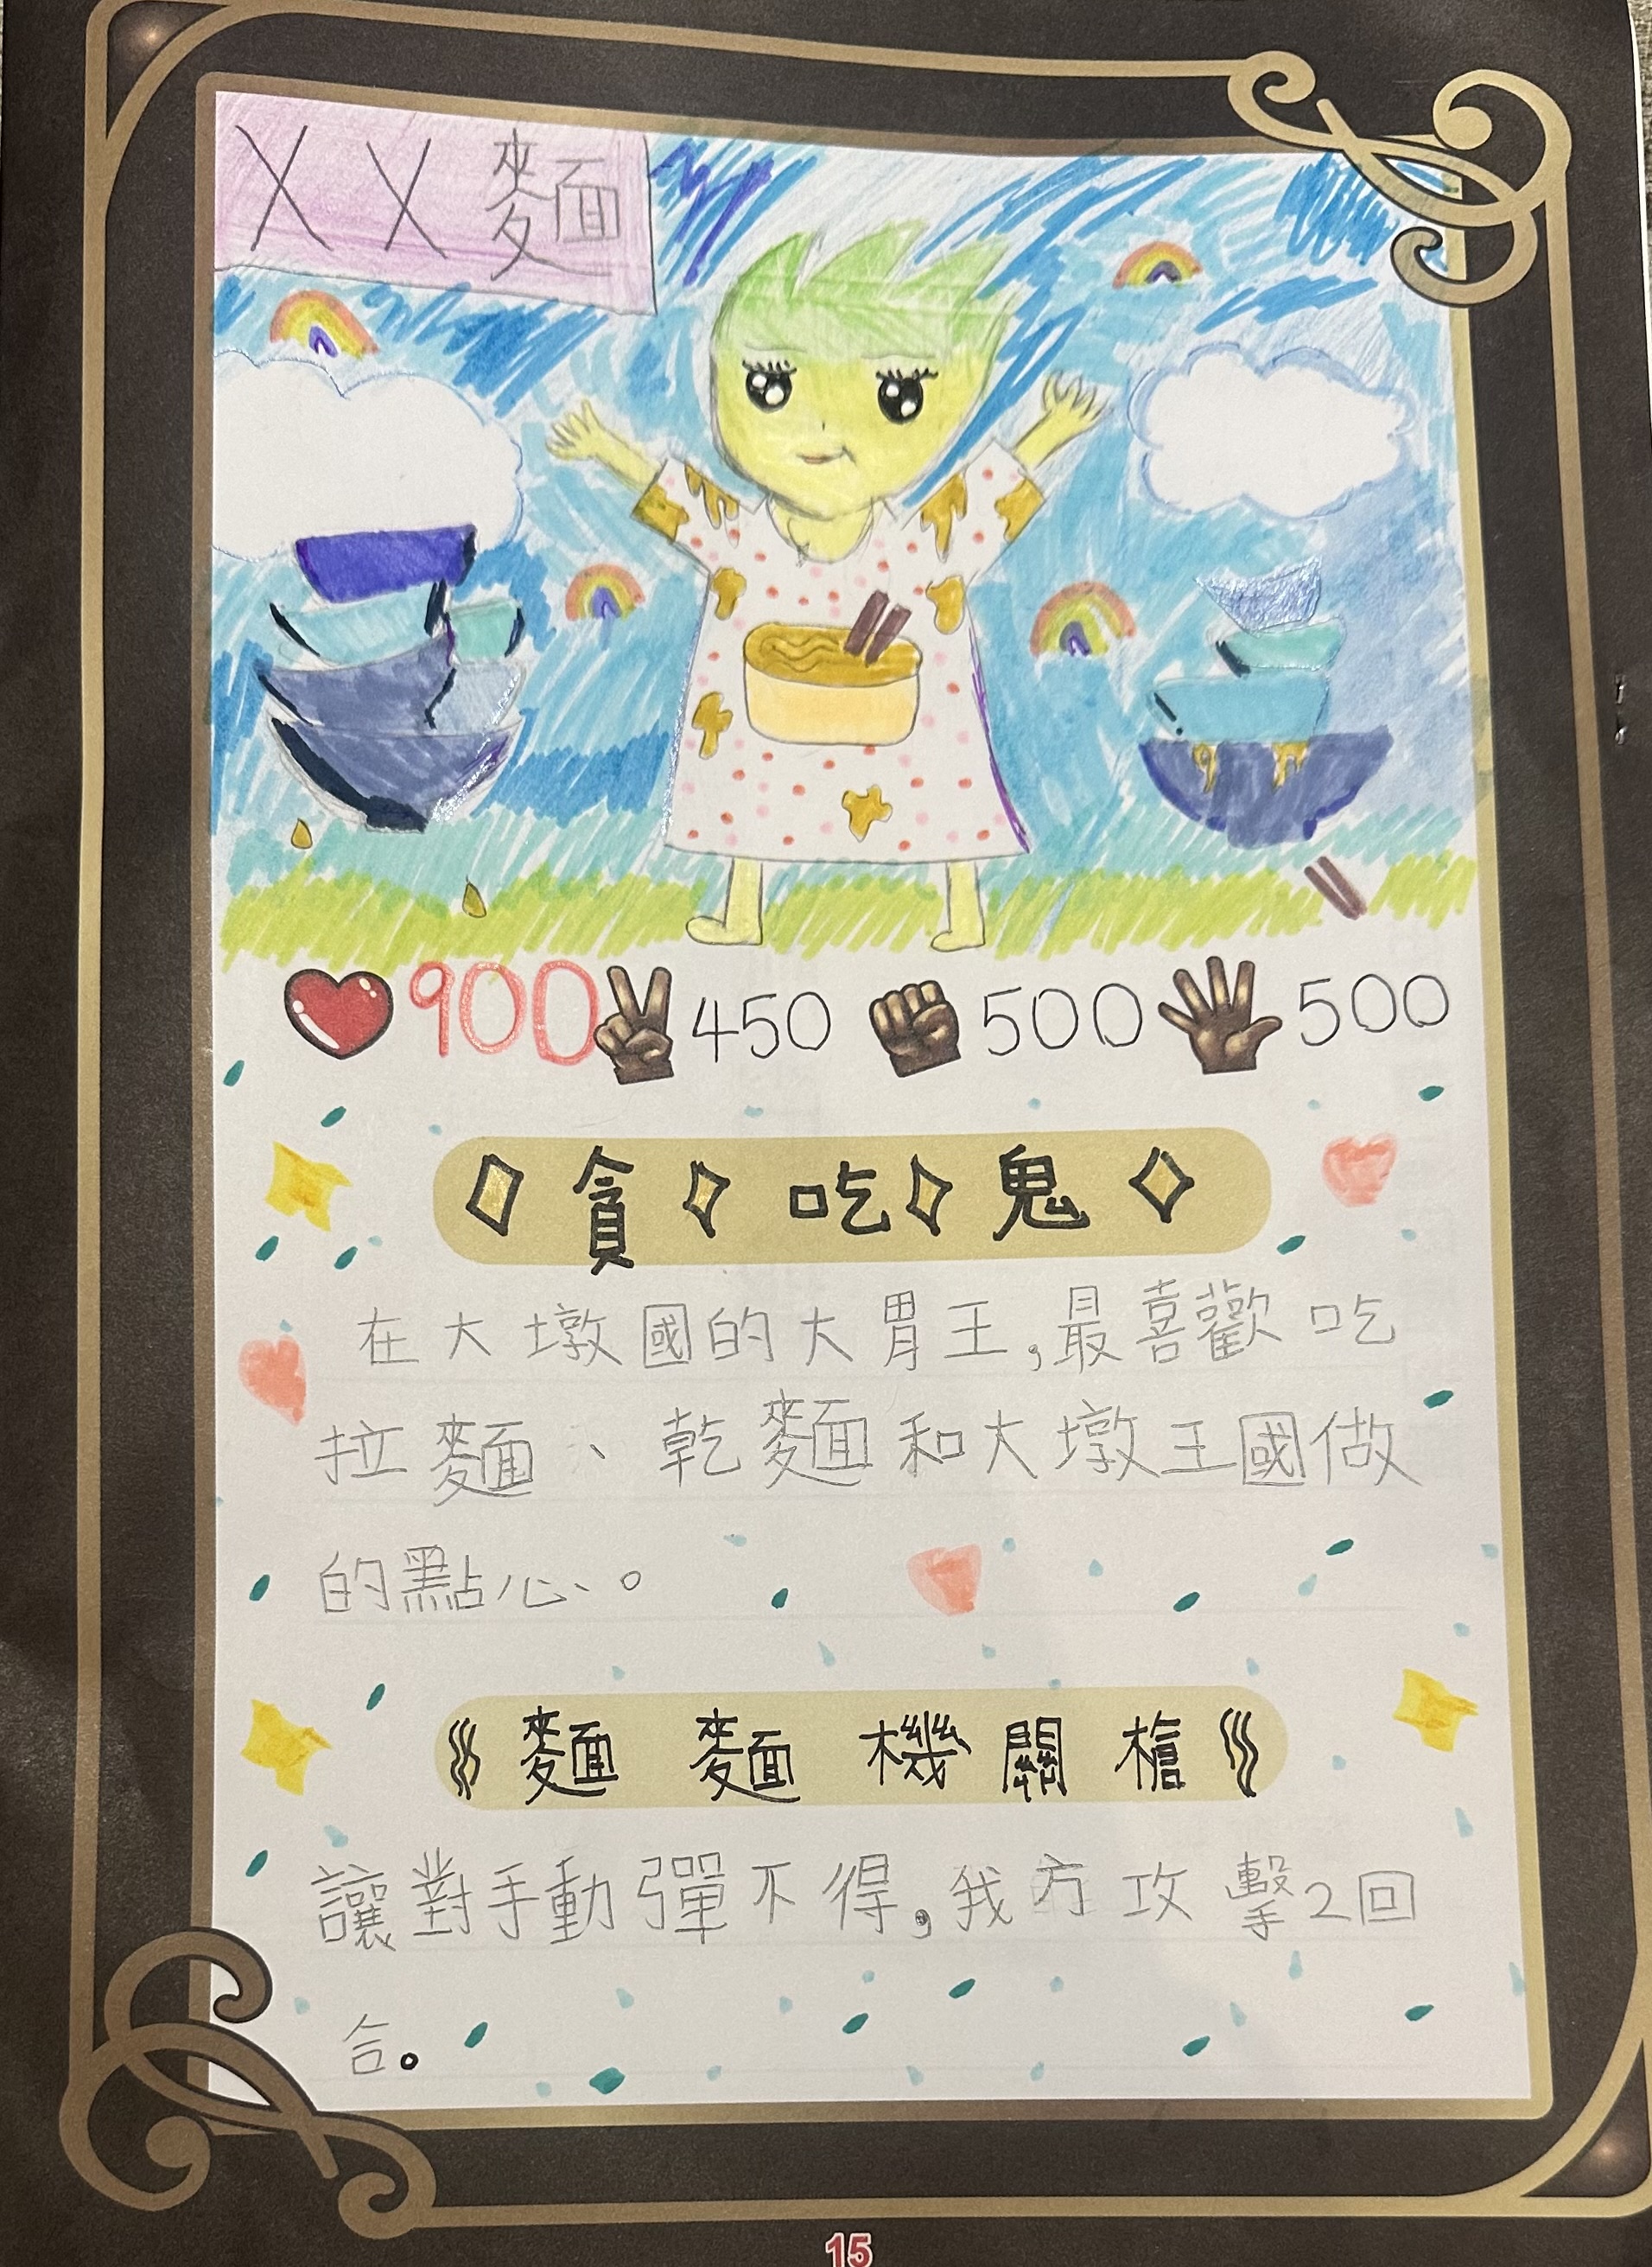 ㄨㄨ麵
900 450 500 500
貪吃鬼
在大墩國的大胃王,最喜歡吃
拉麵、乾麵和大墩王國做
的點心。
麵麵機關槍
讓對手動彈不得,我方攻擊2回
合。
15